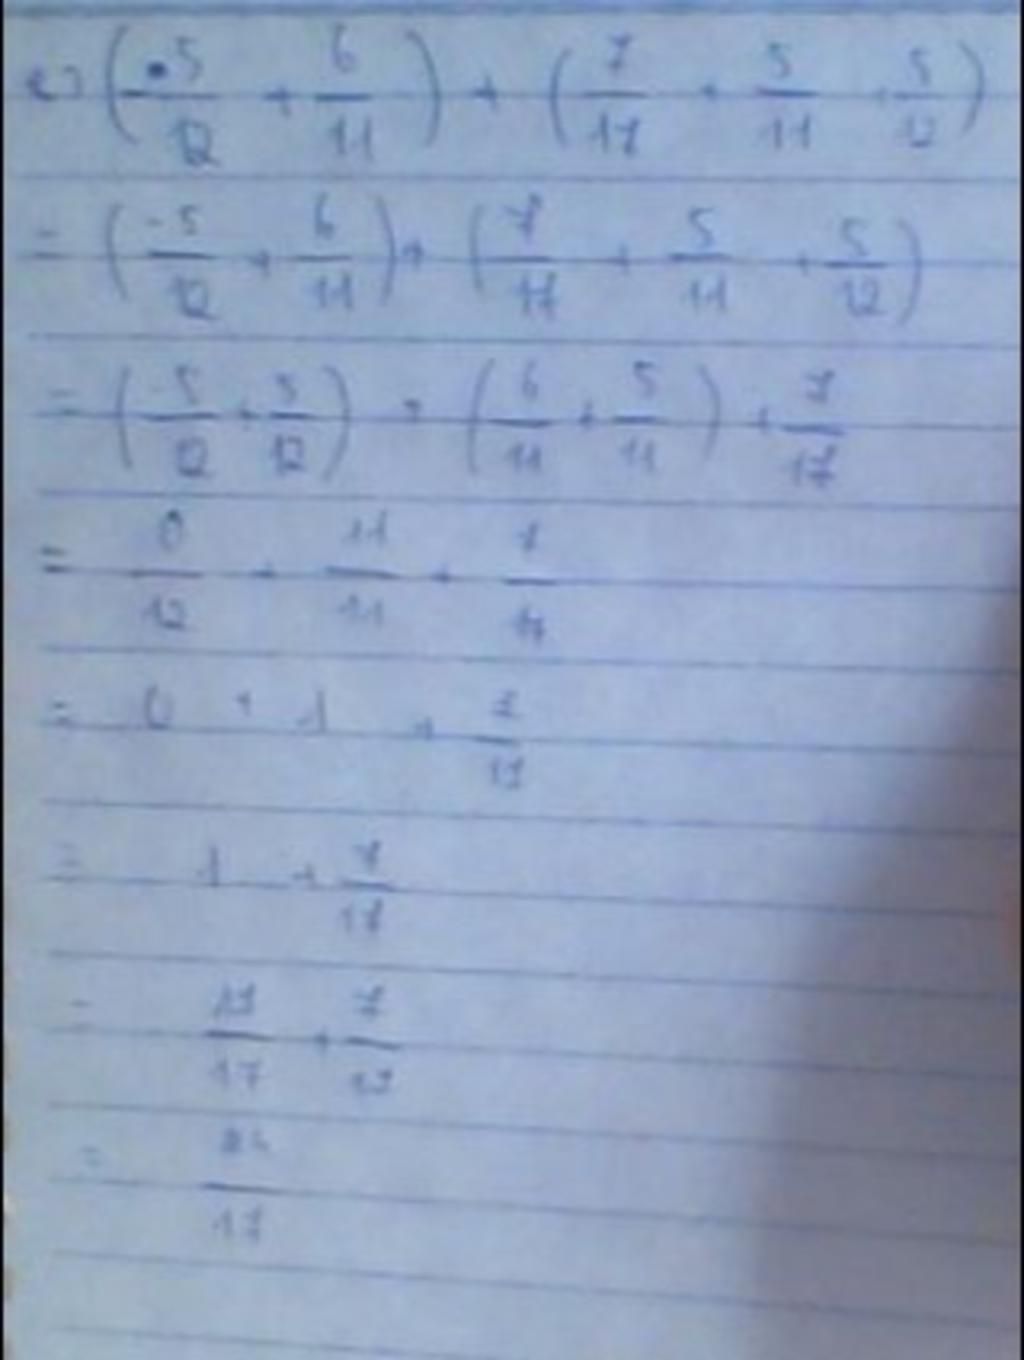 e) (-5/12 + 6/11) + (7/17 + 5/11 + 5/12)
= (-5/12 + 6/11) + (7/17 + 5/11 + 5/12)
= (-5/12 + 5/12) + (6/11 + 5/11) + 7/17
= 0/12 + 11/11 + 7/17
= 0 + 1 + 7/17
= 1 + 7/17
= 17/17 + 7/17
= 24/17